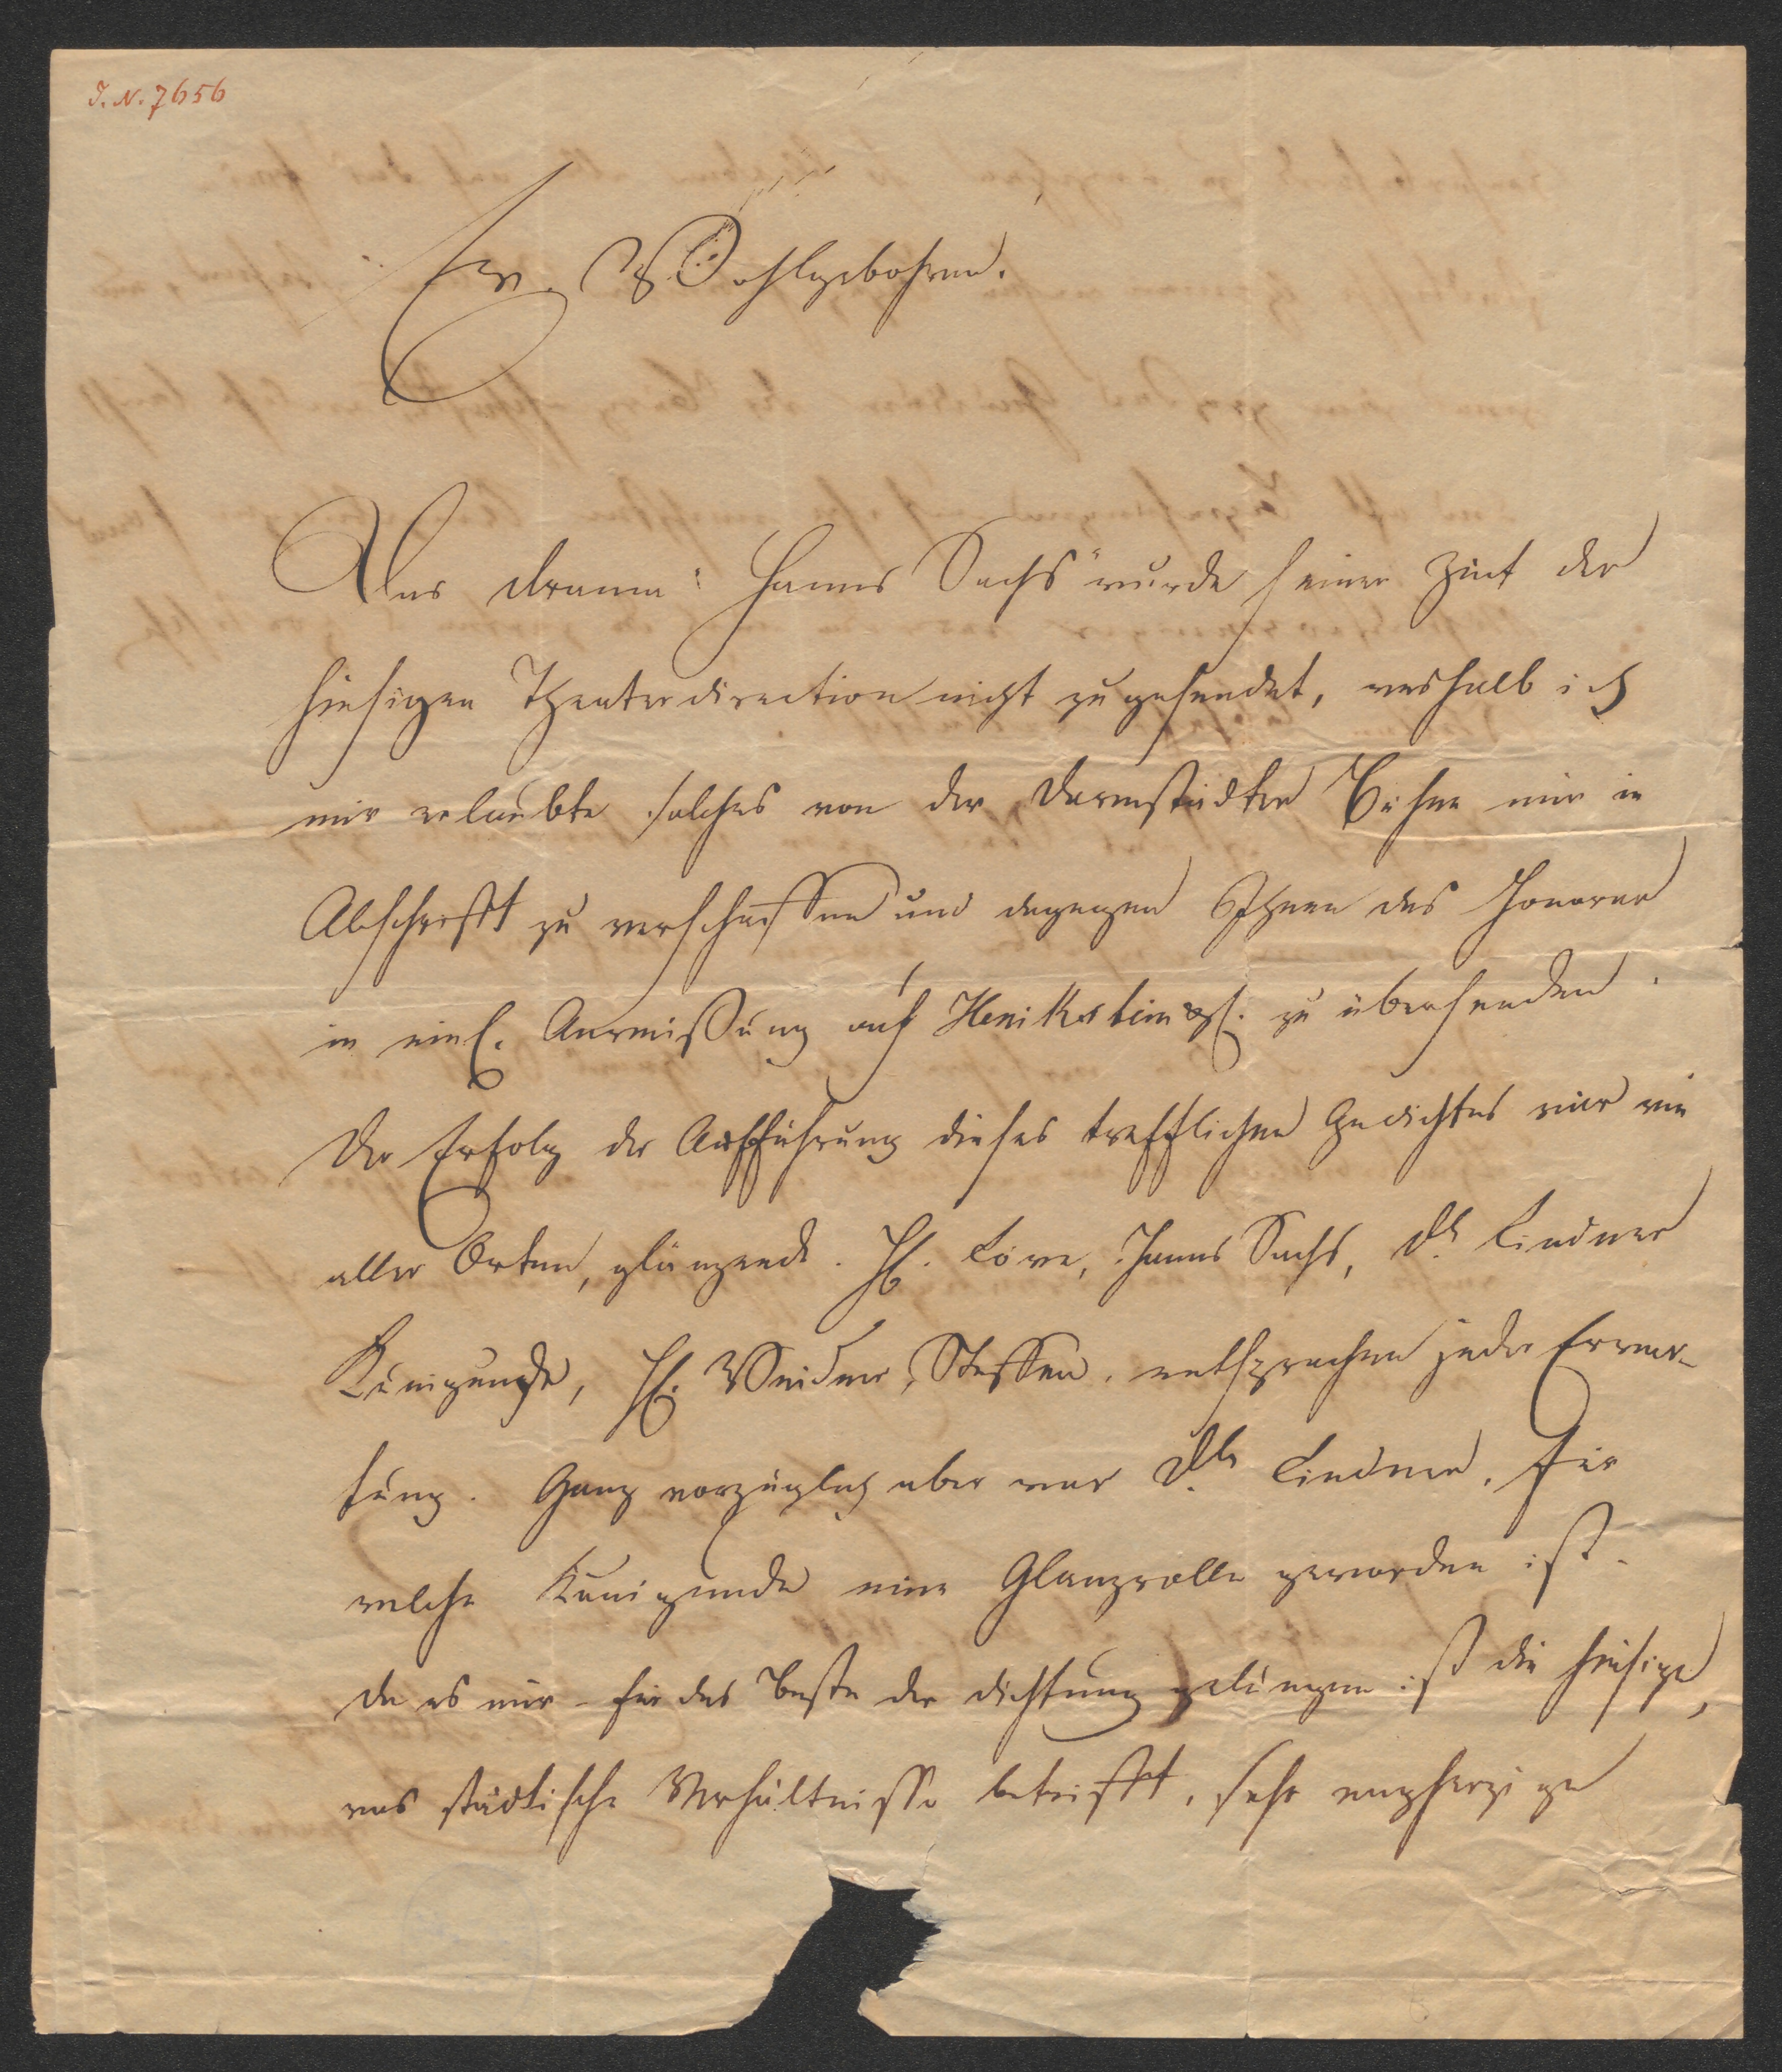 I. N. 7656
Ew. Wohlgebohren.
Das Drama: Hanns Sachs" wurde seiner Zeit der
hiesigen Theaterdirection nicht zugesendet, weshalb ich
mir erlaubte solches von der Darmstädter Bühne mir in
Abschrifft zu verschaffen und dagegen Ihnen das Honorar
in einl. Anweißung auf Henikstein &C. zu übersenden.
Der Erfolg der Aufführung dieses trefflichen Gedichtes war wie
aller Orten, glänzend. H. Löwe, Hanns Sachs, Dlle Lindner
Kunigunde, H. Weidner, Steffen, entsprachen jeder Erwar-
tung. Ganz vorzüglich aber war Dlle Lindner, für
welche Kunigunde eine Glanzrolle geworden ist.
Da es mir - für das Beste der Dichtung gelungen ist die hiesige,
was städtische Verhältnisse betrifft, sehr engherzige